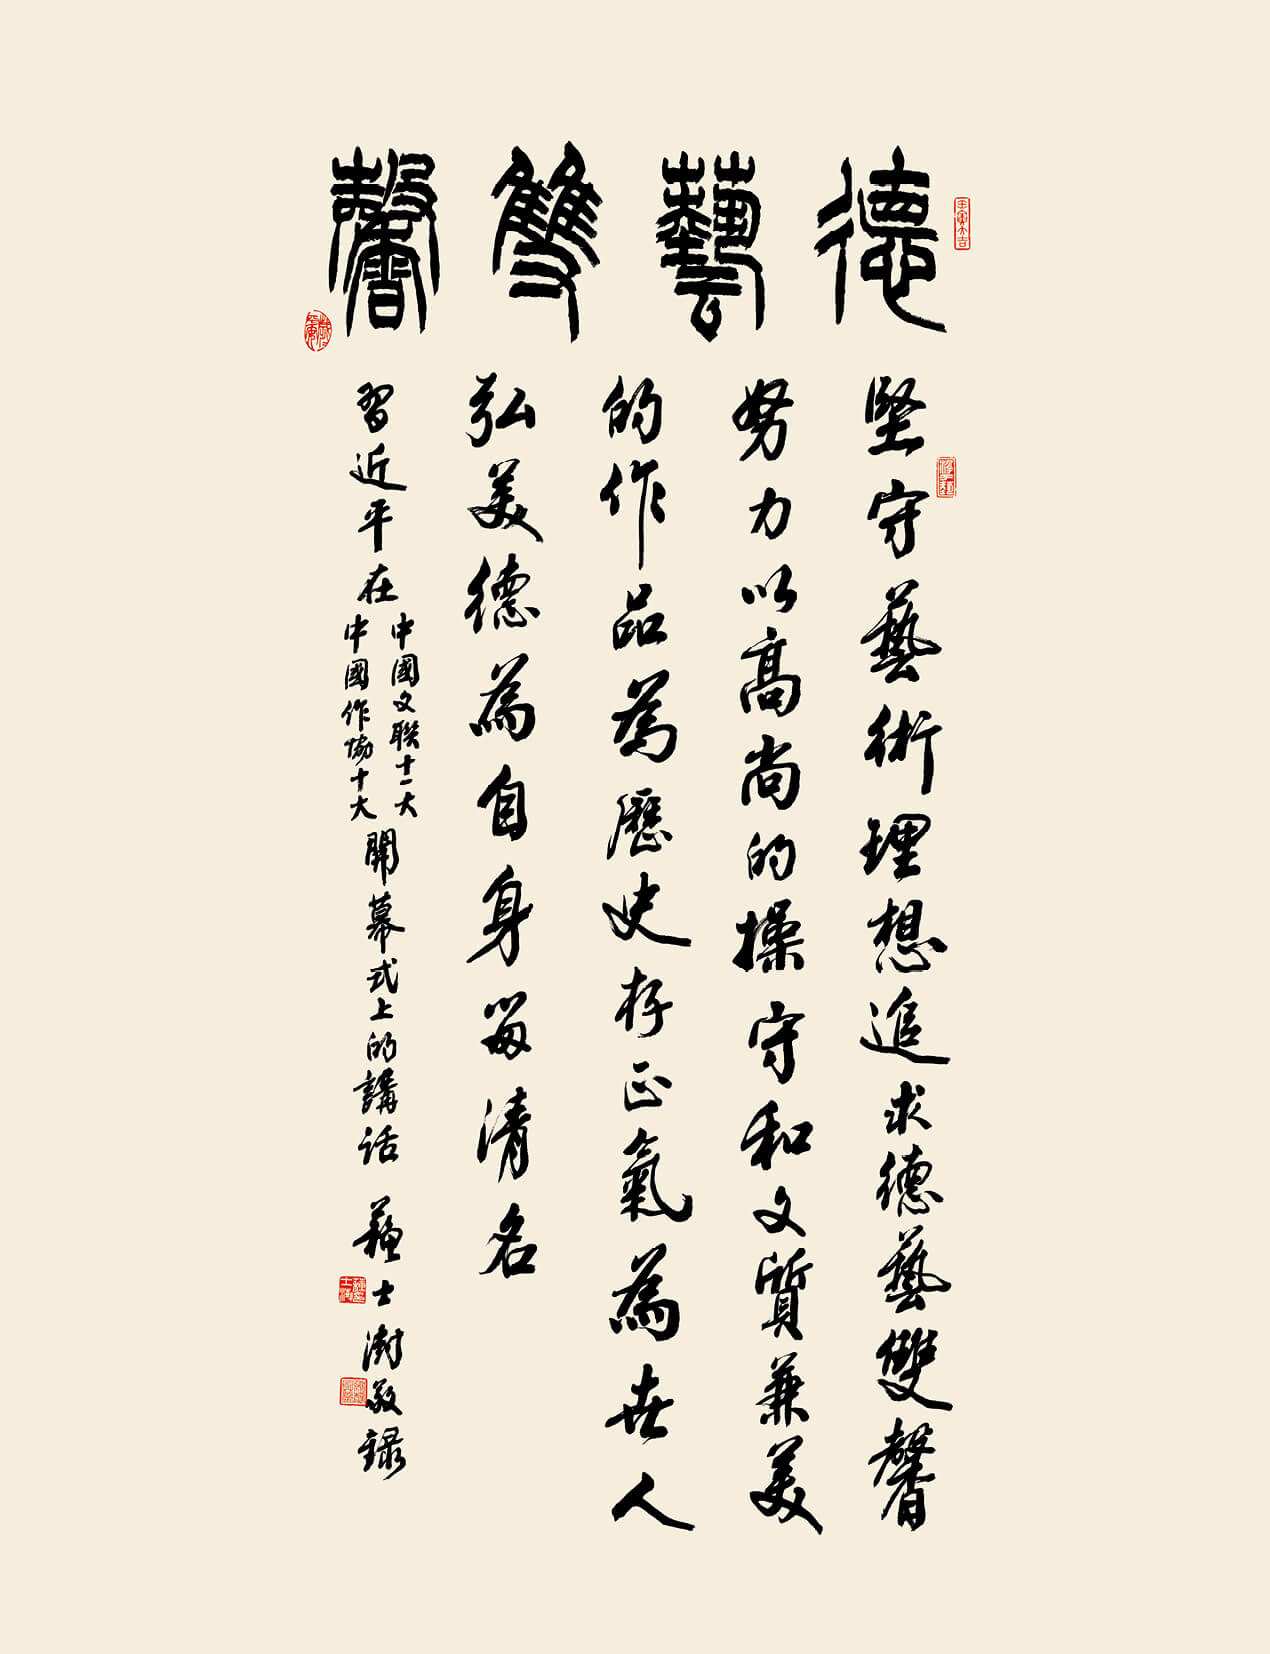 德藝雙馨
堅守藝術理想追求德藝雙馨
努力以高尚的操守和文質兼美
的作品為歷史存正氣為世人
弘美德為自身留清名
習近平在
中國文聯十一大
中國作協十大
開幕式上的講話 蘇士澍敬錄